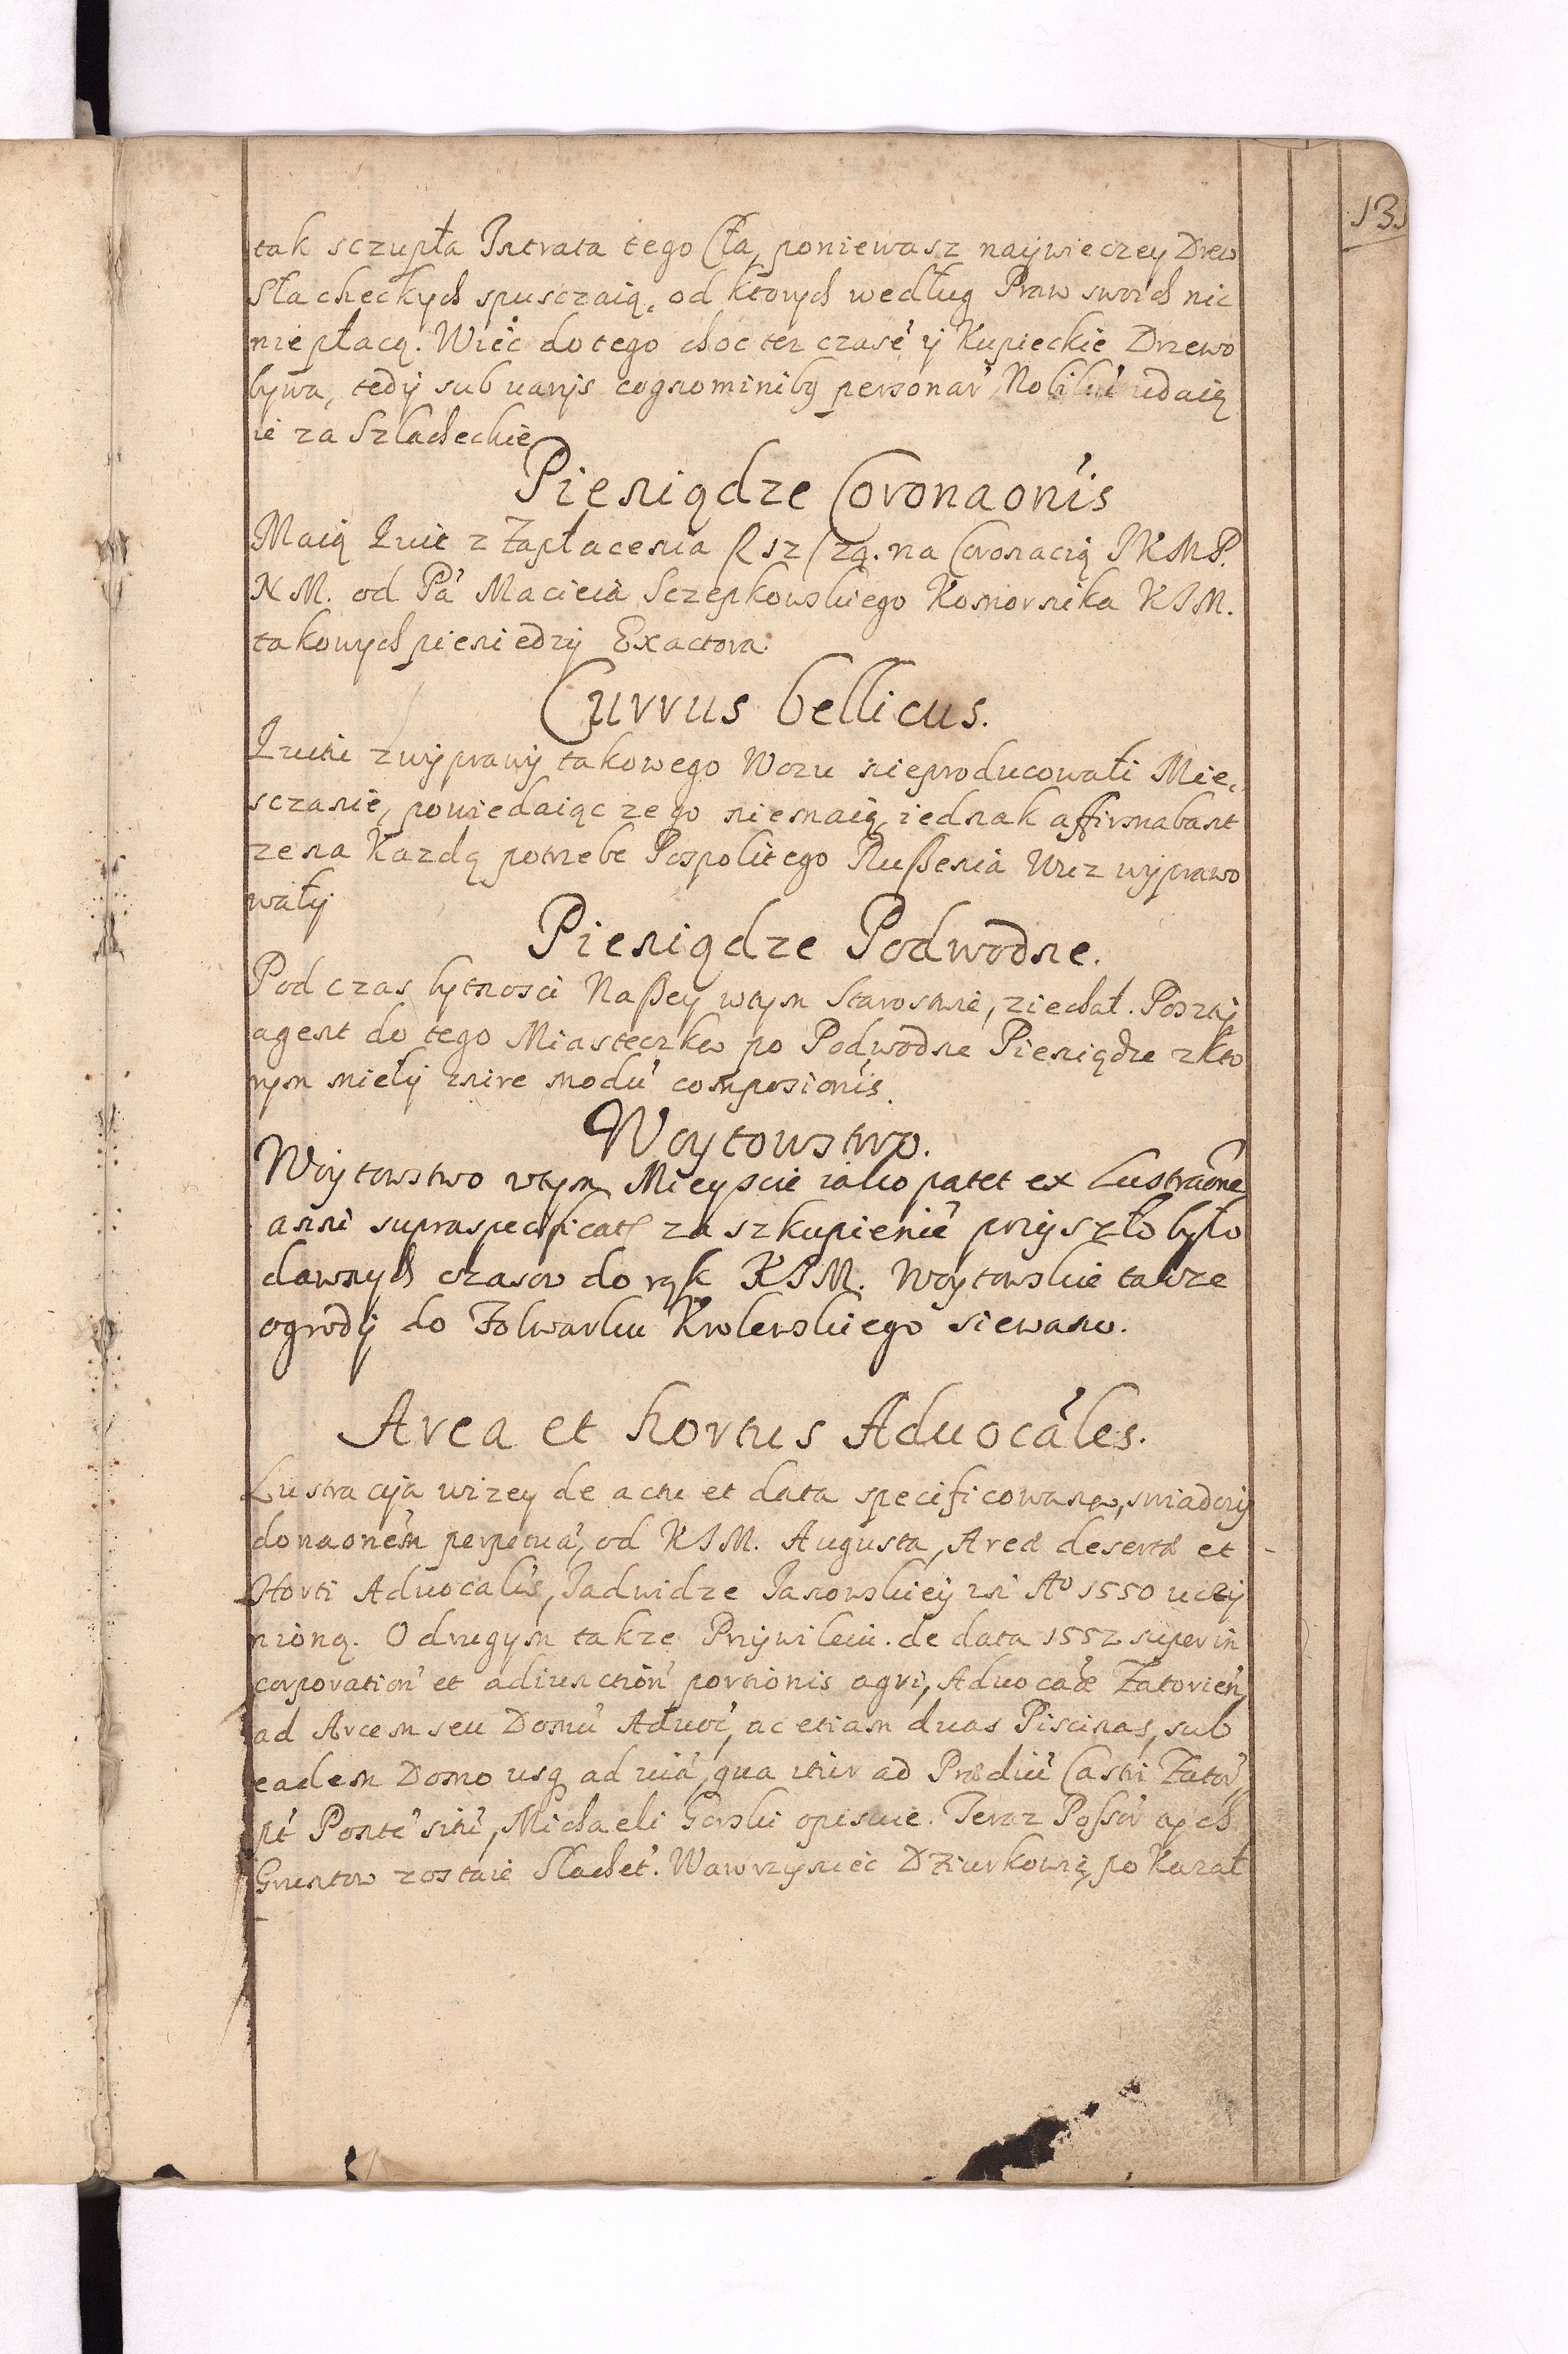 131
tak sczupła Intrata tego Cła, poniewasz naÿwieczey Drew
Slacheckych spusczaią, od ktorych według Praw swoich nic
niepłacą. Wiéc dotego choc tez czasé ÿ Kupieckie Drzewo
bywa, tedÿ sub varÿs cognominibꝫ personar̃ Nobiliũ udaią
ie za Szlacheckie
Pieniądze Coronaonĩs
Maią Quit z Zapłacenia na Coronacią IKMP.
NM. od Pã Macieia Sczepkowskiego Komornika KIM.
takowych pieniedzÿ Exactora.
Currus bellicus.
Quitu zwÿprawÿ takowego Wozu nieproducowali Mie,
sczanie, powiedaiąc ze go niemaią, iednak affirmabant
ze na Kazdą potrzebe Pospolitego Rußenia Woz wÿprawo
wałÿ
Pieniądze Podwodne.
Pod czas bytnosci Naßey wtym Starostwie, ziechał. Poczt
agent do tego Miasteczka po Podwodne Pieniądze z kto
rym mielÿ inire modũ composionĩs.
Woytowstwo.
Woÿtowstwo wtym Mieyscie iako patet ex Lustraõne
anni supraspecificati za szkupienié przÿszło było
dawnych czasow do rąk KIM. Woytowskie takze
ogrodÿ do Folwarku Krolewskiego siewano.
Area et hortus Aduocãles.
Lustracÿa wizey de actu et data specificowana, swiadczÿ
donaonẽm perpetuã, od KIM. Augusta, Areæ desertæ et
Horti Aduocalis, Iadwidze Ianowskieÿ in Aº 1550 uczÿ
nioną. O drugym takze Przÿwileiu. de data 1552 super in
corporatioñ et adiunctioñ portionis agri, Aduocãlẽ Zatorieñ
ad Arcem seu Domũ Aduoc̃, ac etiam duas Piscinas, sub
eadem Domo usqꝫ ad uiã, qua itur ad Prædiũ Castri Zator̃,
Pontẽ sitũ, Michaeli Gorski opisuie. Teraz Possor̃ tych
Gruntow zostaie Slachet̃. Wawrzyniec Dziurkowic, po Kazał